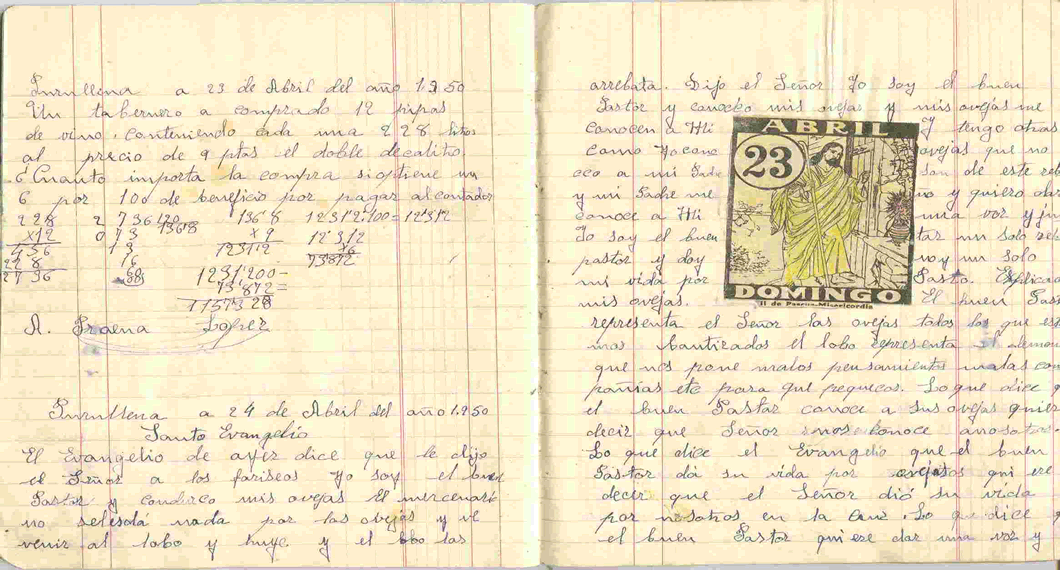 Purullena a 23 de Abril del año 1.950
Un tabernero a comprado 12 pipas
de vino. conteniendo cada una 228 litros
al precio de 9 ptas el doble decalitro.
¿Cuanto importa la compra si optiene un
6 por 100 de beneficio por pagar al contador
228 2736 120 136'8 1231'2·100=12312
x12 073 136'8 x9 12312
456 13 12312 x6
228 16 73872
2736 1231'200-
73'872=
1157328
A. Praena Lopez
Purullena a 24 de Abril del año 1.950
Santo Evangelio
El Evangelio de ayer dice que le dijo
el Señor a los fariseos Yo soy el buen
Pastor y conozco mis ovejas El mercenario
no se nada por las ovejas y ve
venir al lobo y huye y el lobo las
arrebata. Dijo el Señor Yo soy el buen
Pastor y conozco mis ovejas y mis ovejas me
conocen a Mi Y tengo otras
como Yo cono ovejas que no
cco a mi Padre son de este reb
y mi Padre me no y quiero dar
conoce a Mi una voz y
Yo soy el buen tar un solo reb
pastor y doy no y un solo
mi vida por Pasto. Explicac
mis ovejas. El buen Past
ABRIL
23
DOMINGO
II de Pascua. Misericordia
representa el Señor las ovejas todos los que est
mos bautizados el lobo representa el demon
que nos pone malos pensamientos malas com
pañias etc para que pequeos. Lo que dice q
el buen Pastor conoce a sus ovejas quier
decir que Señor nos conoce a nosotros.
Lo que dice el Evangelio que el buen
Pastor da su vida por ovejitas qui ere
decir que el Señor dió su vida
por nosotros en la Cruz. Lo que dice q
el buen Pastor qui ere dar una voz y